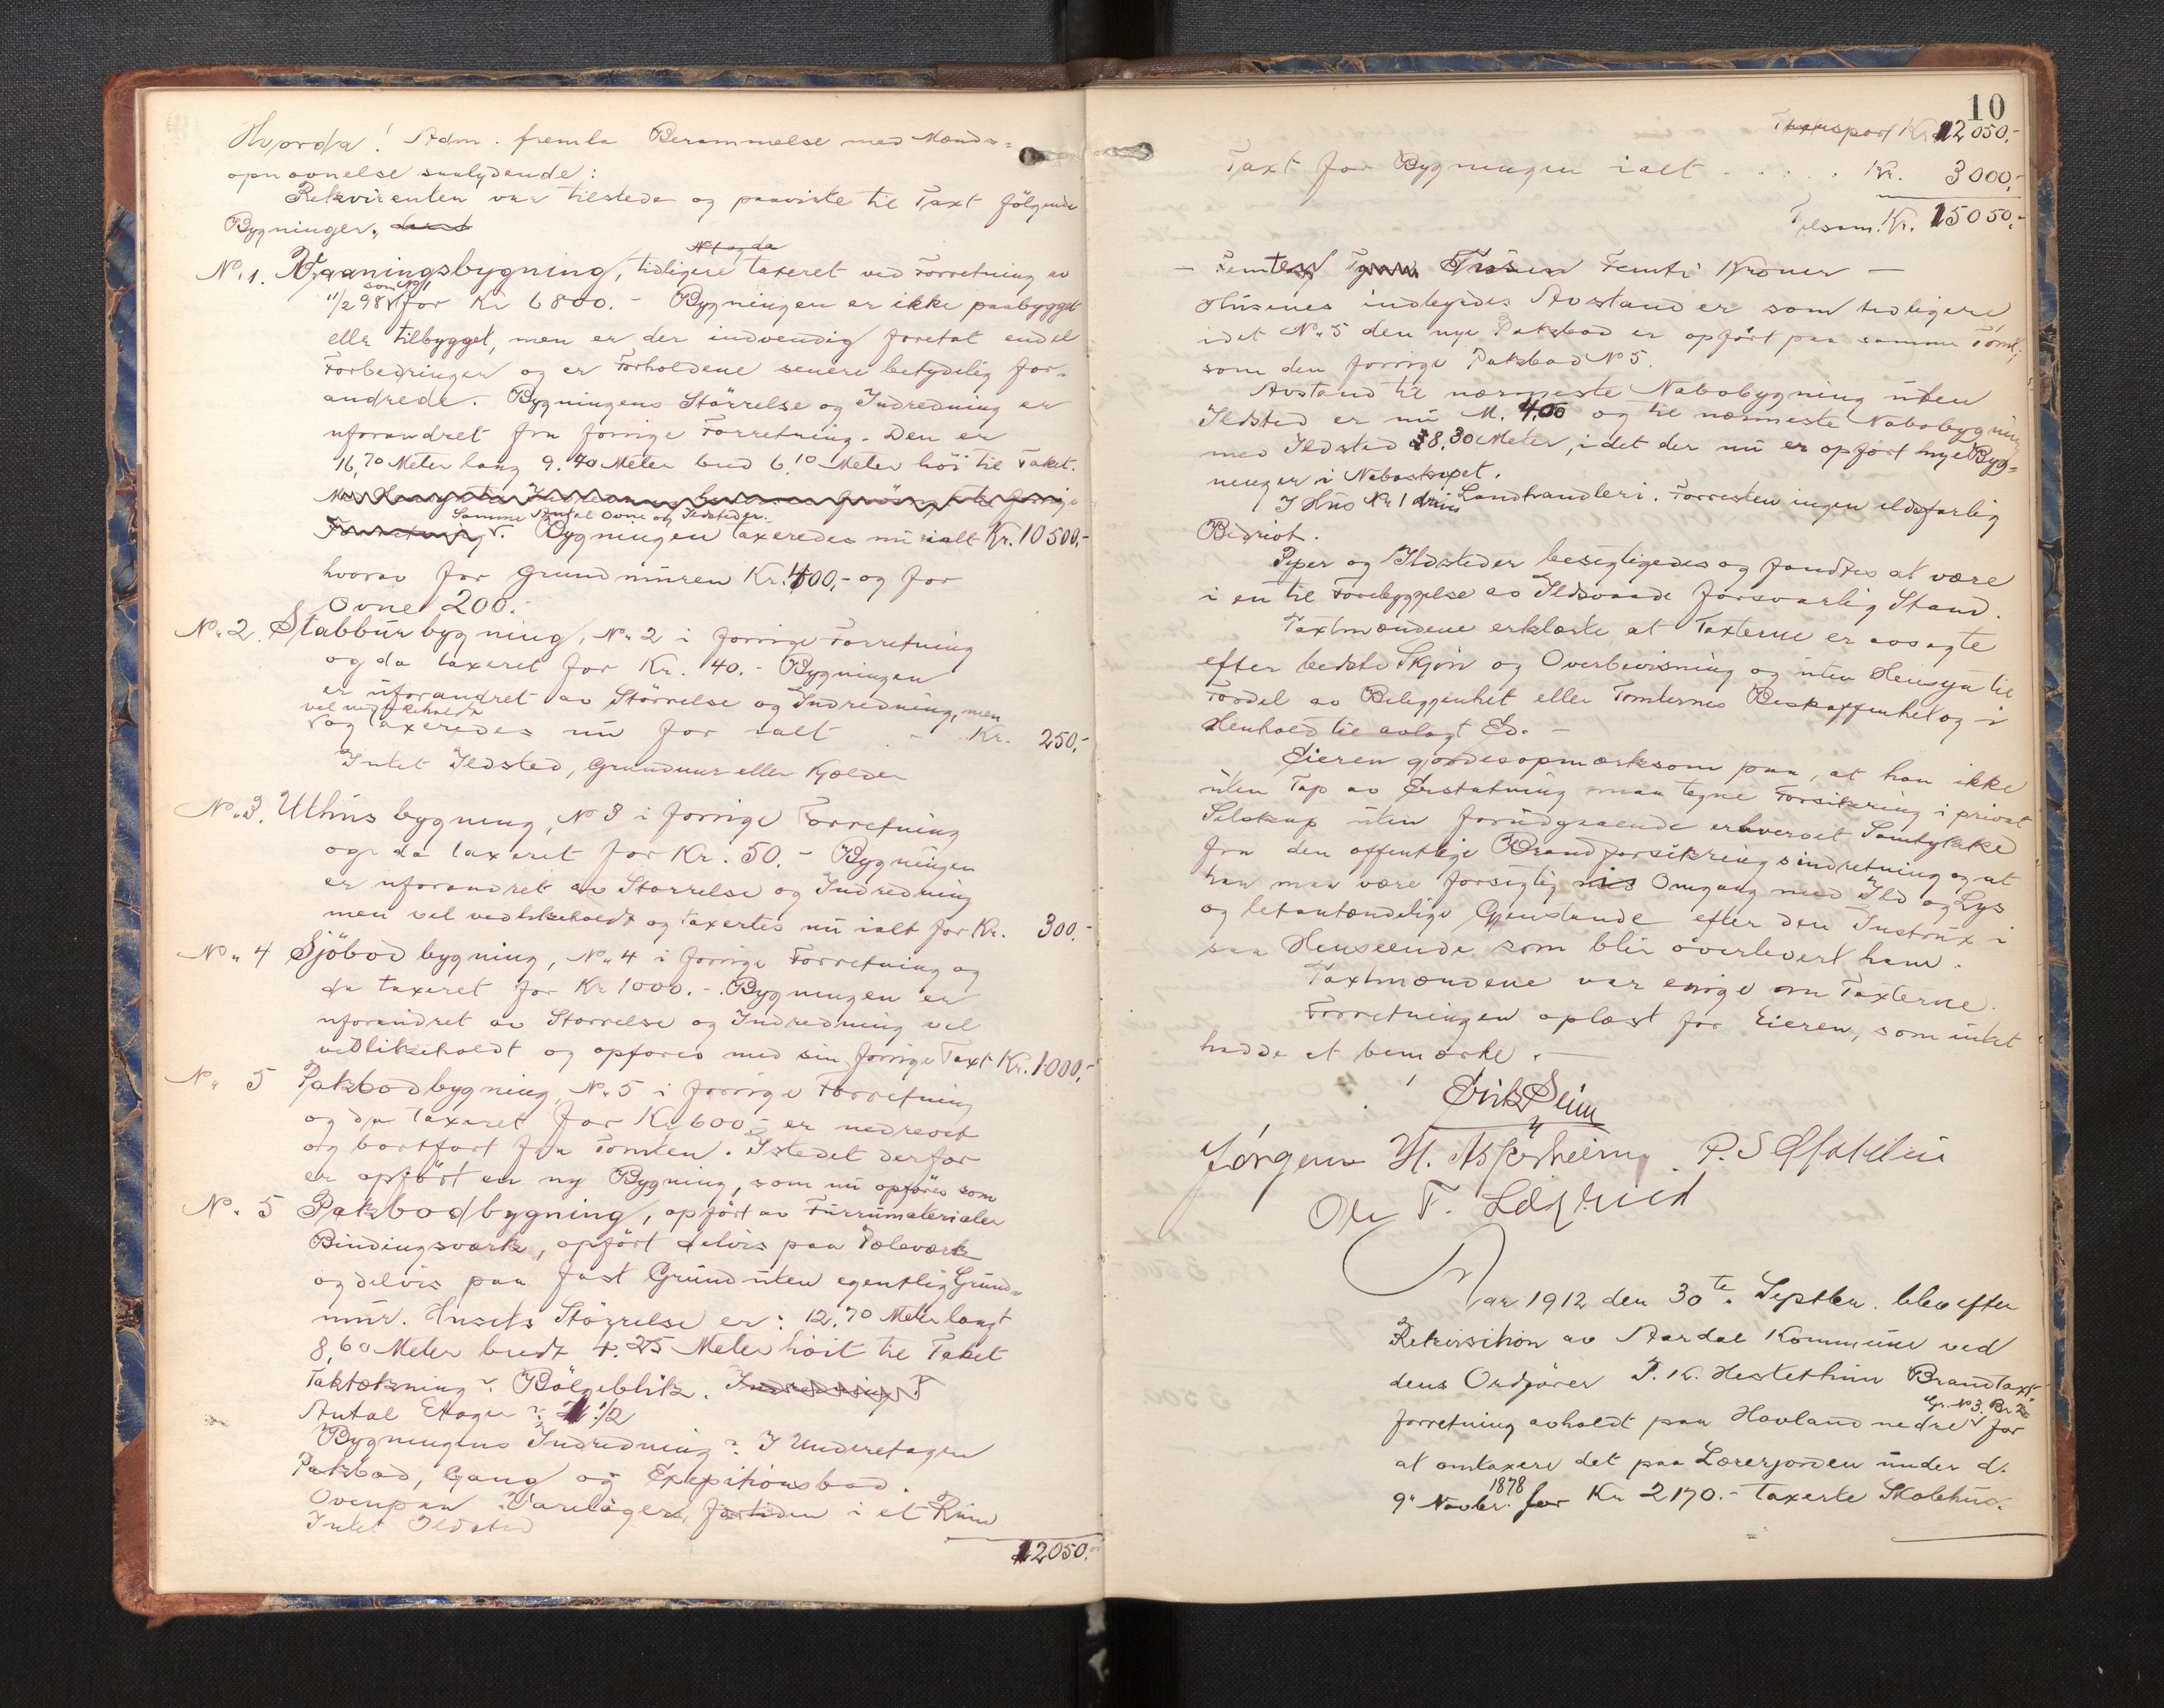 Hvorda! Adm. fremla Berammelse med Mænds-
opnævnelse saalydende:
Rekvirenten var tilstede og paaviste til Taxt følgende
Bygninger.
No. 1. Vaaningsbygning, tidligere taxeret ved Forretning av
11/2 98 som No 1 for Kr 6800.- Bygningen er ikke paabygget
elle tilbygget, men er der indvendig foretat endel
Forbedringer og er Forholdene senere betydelig for-
andrede. Bygningens Størrelse og Indredning er
uforandret fra forrige Forretning. Den er
16,70 Meter lang 9.40 Meter bred 6.10 Meter høi til Taket.
Samme Antal Ovne og Ildsteder.
Bygningen taxeredes nu ialt Kr. 10500,-
hvorav for Grundmuren Kr. 400,- og for
Ovne 200.-
No. 2. Stabbursbygning, No. 2 i forrige Forretning
og da taxeret for Kr. 40.- Bygningen
er uforandret av Størrelse og Indredning, men
vel vedlikeholdt
og taxeredes nu for ialt - Kr. 250,-
Intet Ildsted, Grundmur eller Kjelder
No. 3. Uthusbygning, No 3 i forrige Forretning
og da taxeret for Kr. 50.- Bygningen
er uforandret av Størrelse og Indredning
men vel vedlikeholdt og taxertes nu ialt for Kr. 300.-
No. 4 Sjøbodbygning, No. 4 i forrige Forretning og
da taxeret for Kr 1000.-. Bygningen er
uforandret av Størrelse og Indredning vel
vedlikeholdt og opføres med sin forrige Taxt Kr. 1000,-
No. 5 Pakbodbygning, No. 5 i forrige Forretning
og da taxeret for Kr. 600,- er nedrevet
og bortført fra Tomten. Istedet derfor
er opført en ny Bygning, som nu opføres som
No. 5 Pakbodbygning, opført av Furrumaterialer
Bindingsværk, opført delvis paa Pæleværk
og delvis paa fast Grund uten egentlig Grund-
mur. Husets Størrelse er: 12,70 Meter langt
8,60 Meter bredt 4.25 Meter høit til Taket
Taktækning? Bølgeblik.
Antal Etager? 1 1/2
Bygningens Indredning? I Underetagen
Pakbod, Gang og Expeditionsbod.
Ovenpaa Varelager, fortiden i et Rum
Intet Ildsted
12050.-
10
Transport Kr. 12050,-
Taxt for Bygningen ialt . . . . . Kr. 3000,-
Tilsam. Kr. 15050,-
- Femten Tusen Femti Kroner -
Husenes indbyrdes Avstand er som tidligere
idet No. 5 den nye Pakbod er opført paa samme Tomt,
som den forrige Pakbod No 5.
Avstand til nærmeste Nabobygning uten
Ildsted er nu M. 4,00 og til nærmeste Nabobygning
med Ildsted 8,30 Meter, idet der nu er opført nye Byg-
ninger i Naboskapet.
I Hus Nr 1 drives Landhandleri. Forresten ingen ildsfarlig
Bedrift.
Piper og Ildsteder besigtigedes og fandtes at være
i en til Forebyggelse av Ildsvaade forsvarlig Stand.
Taxtmændene erklærte at Taxterne er avsagte
efter bedste Skjøn og Overbevisning og uten Hensyn til
Fordel av Beliggenhet eller Tomternes Beskaffenhet og i
Henhold til avlagt Ed. -
Eieren gjordes opmærksom paa, at han ikke
uten Tap av Erstatning maa tegne Forsikring i privat
Selskap uten forudgaaende erhvervet Samtykke
fra den offentlige Brandforsikringsindretning og at
han maa være forsigtig med Omgang med Ild og Lys
og letantændelige Gjenstande efter den Instrux i
saa Henseende som blir overlevert ham.
Taxtmændene var enige om Taxterne.
Forretningen oplæst for Eieren, som intet
hadde at bemærke. -
Eirik Seim
Jørgen H. Asperheim
Ole T.
Aar 1912 den 30te Septbr. blev efter
Rekvisition av Aardal Kommune ved
dens Ordfører J. K. Hestethun Brandtaxt-
forretning avholdt paa Hovland nedre Gr. No 3. Br. 2 for
at omtaxere det paa Lærerjorden under d.
9de Novbr. 1878 for Kr 2170.- taxerte Skolehus.